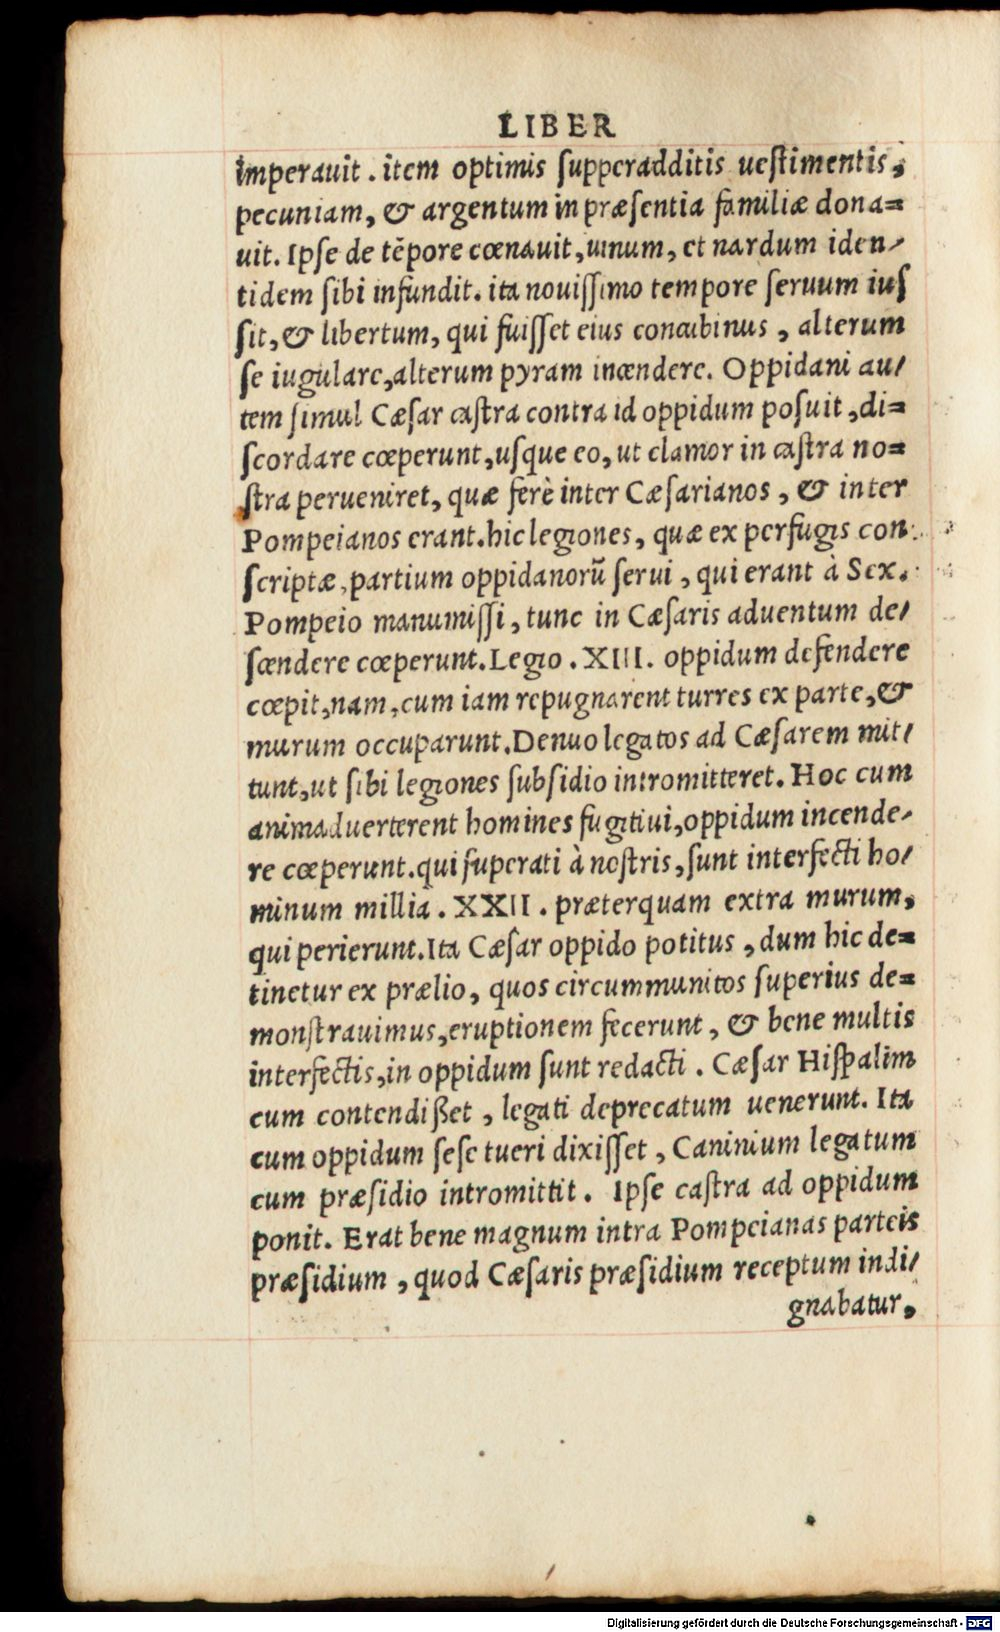 LIBER
imperauit. item optimis supperadditis uestimentis,
pecuniam, & argentum in præsentia familiæ dona=
uit. Ipse de tēpore cœnauit, uinum, et nardum iden/
tidem sibi infundit. ita nouissimo tempore seruum ius
sit, & libertum, qui fuisset eius concubinus, alterum
se iugulare, alterum pyram incendere. Oppidani au/
tem simul Cæsar castra contra id oppidum posuit, di=
scordare cœperunt, usque eo, ut clamor in castra no=
stra perueniret, quæ ferè inter Cæsarianos, & inter
Pompeianos erant. hic legiones, quæ ex perfugis con
scriptæ, partium oppidanorū serui, qui erant à Sex.
Pompeio manumissi, tunc in Cæsaris aduentum de/
scendere cœperunt. Legio. XIII. oppidum defendere
cœpit, nam, cum iam repugnarent turres ex parte, &
murum occuparunt. Denuo legatos ad Cæsarem mit/
tunt, ut sibi legiones subsidio intromitteret. Hoc cum
animaduerterent homines fugitiui, oppidum incende/
re cœperunt. qui superati à nostris, sunt interfecti ho/
minum millia. XXII. præterquam extra murum,
qui perierunt. Ita Cæsar oppido potitus, dum hic de=
tinetur ex prælio, quos circummunitos superius de=
monstrauimus, eruptionem fecerunt, & bene multis
interfectis, in oppidum sunt redacti. Cæsar Hispalim
cum contendißet, legati deprecatum uenerunt. Ita
cum oppidum sese tueri dixisset, Caninium legatum
cum præsidio intromittit. Ipse castra ad oppidum
ponit. Erat bene magnum intra Pompeianas parteis
præsidium, quod Cæsaris præsidium receptum indi/
gnabatur,
Digitalisierung gefördert durch die Deutsche Forschungsgemeinschaft - DFG